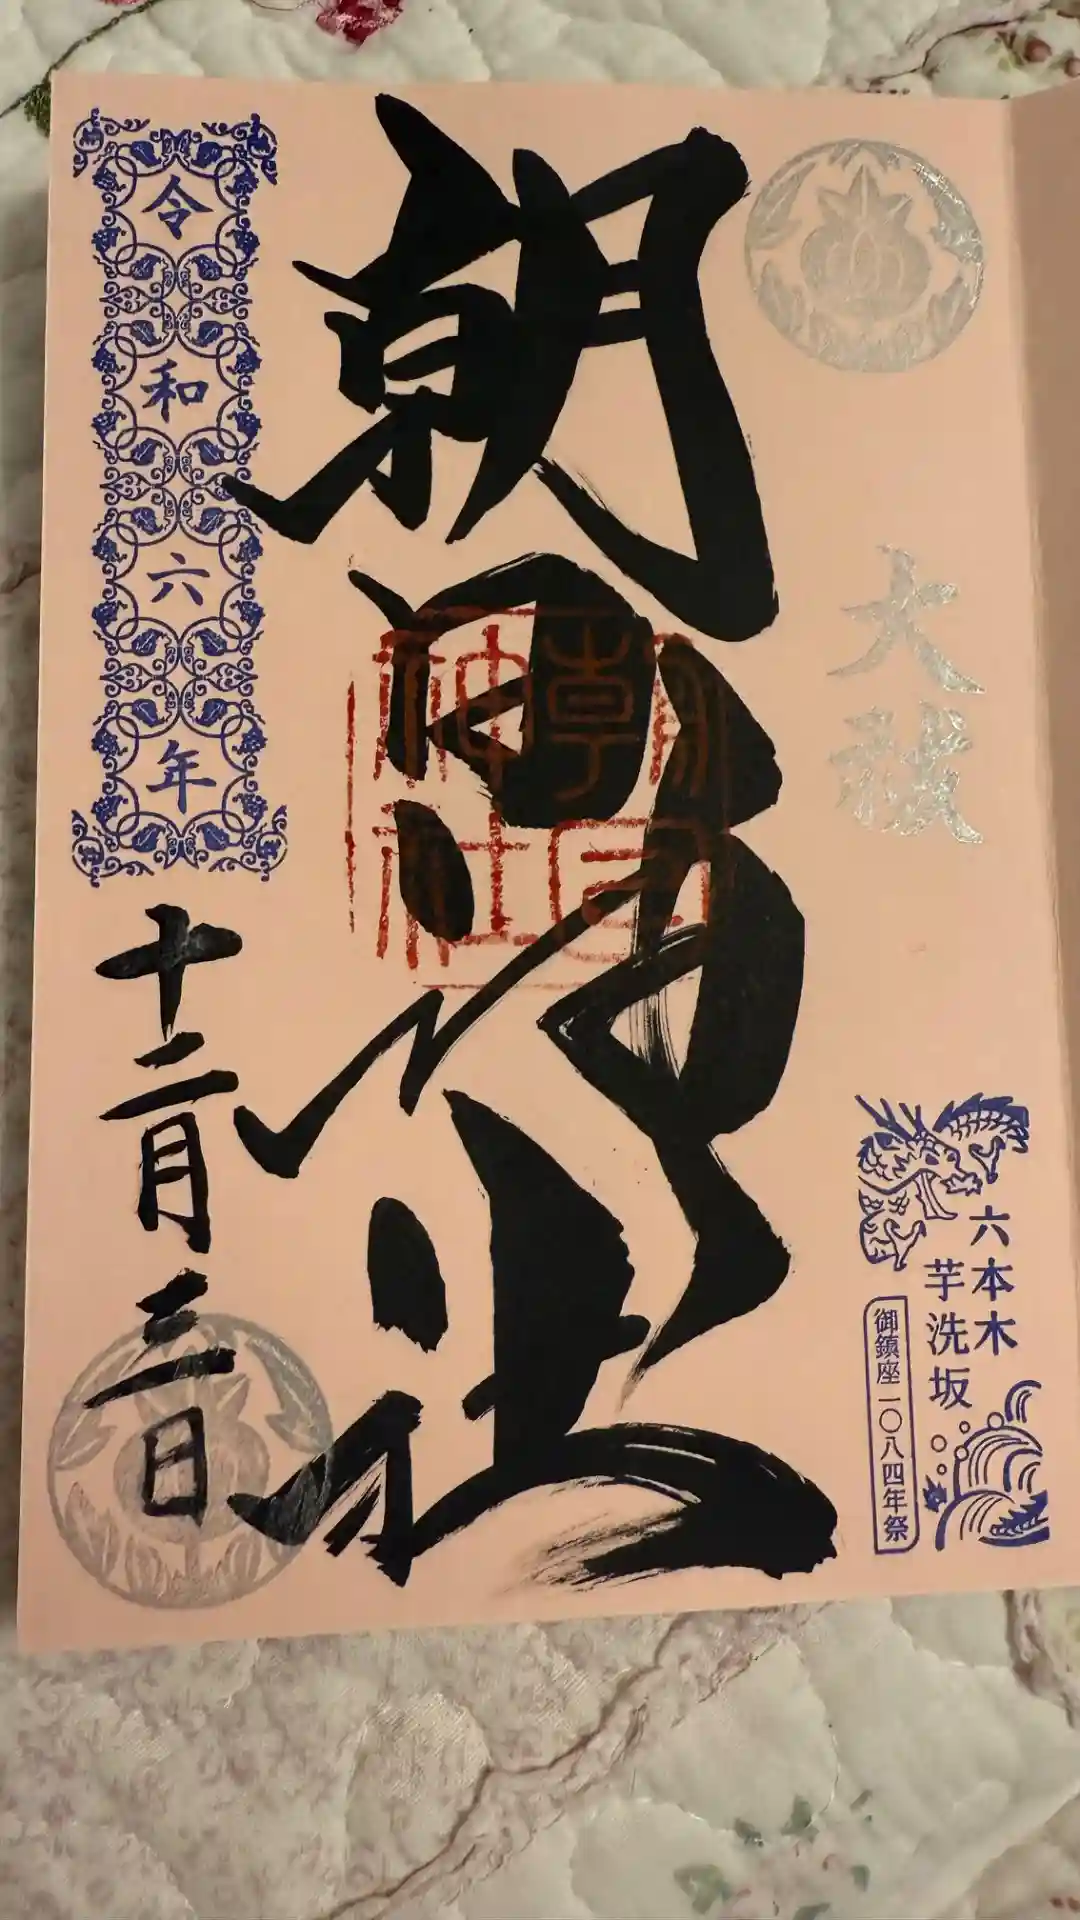 大祓
六本木
芋洗坂
御鎮座一〇八四年祭
朝日神社
朝日
神社
令和六年
十二月三日